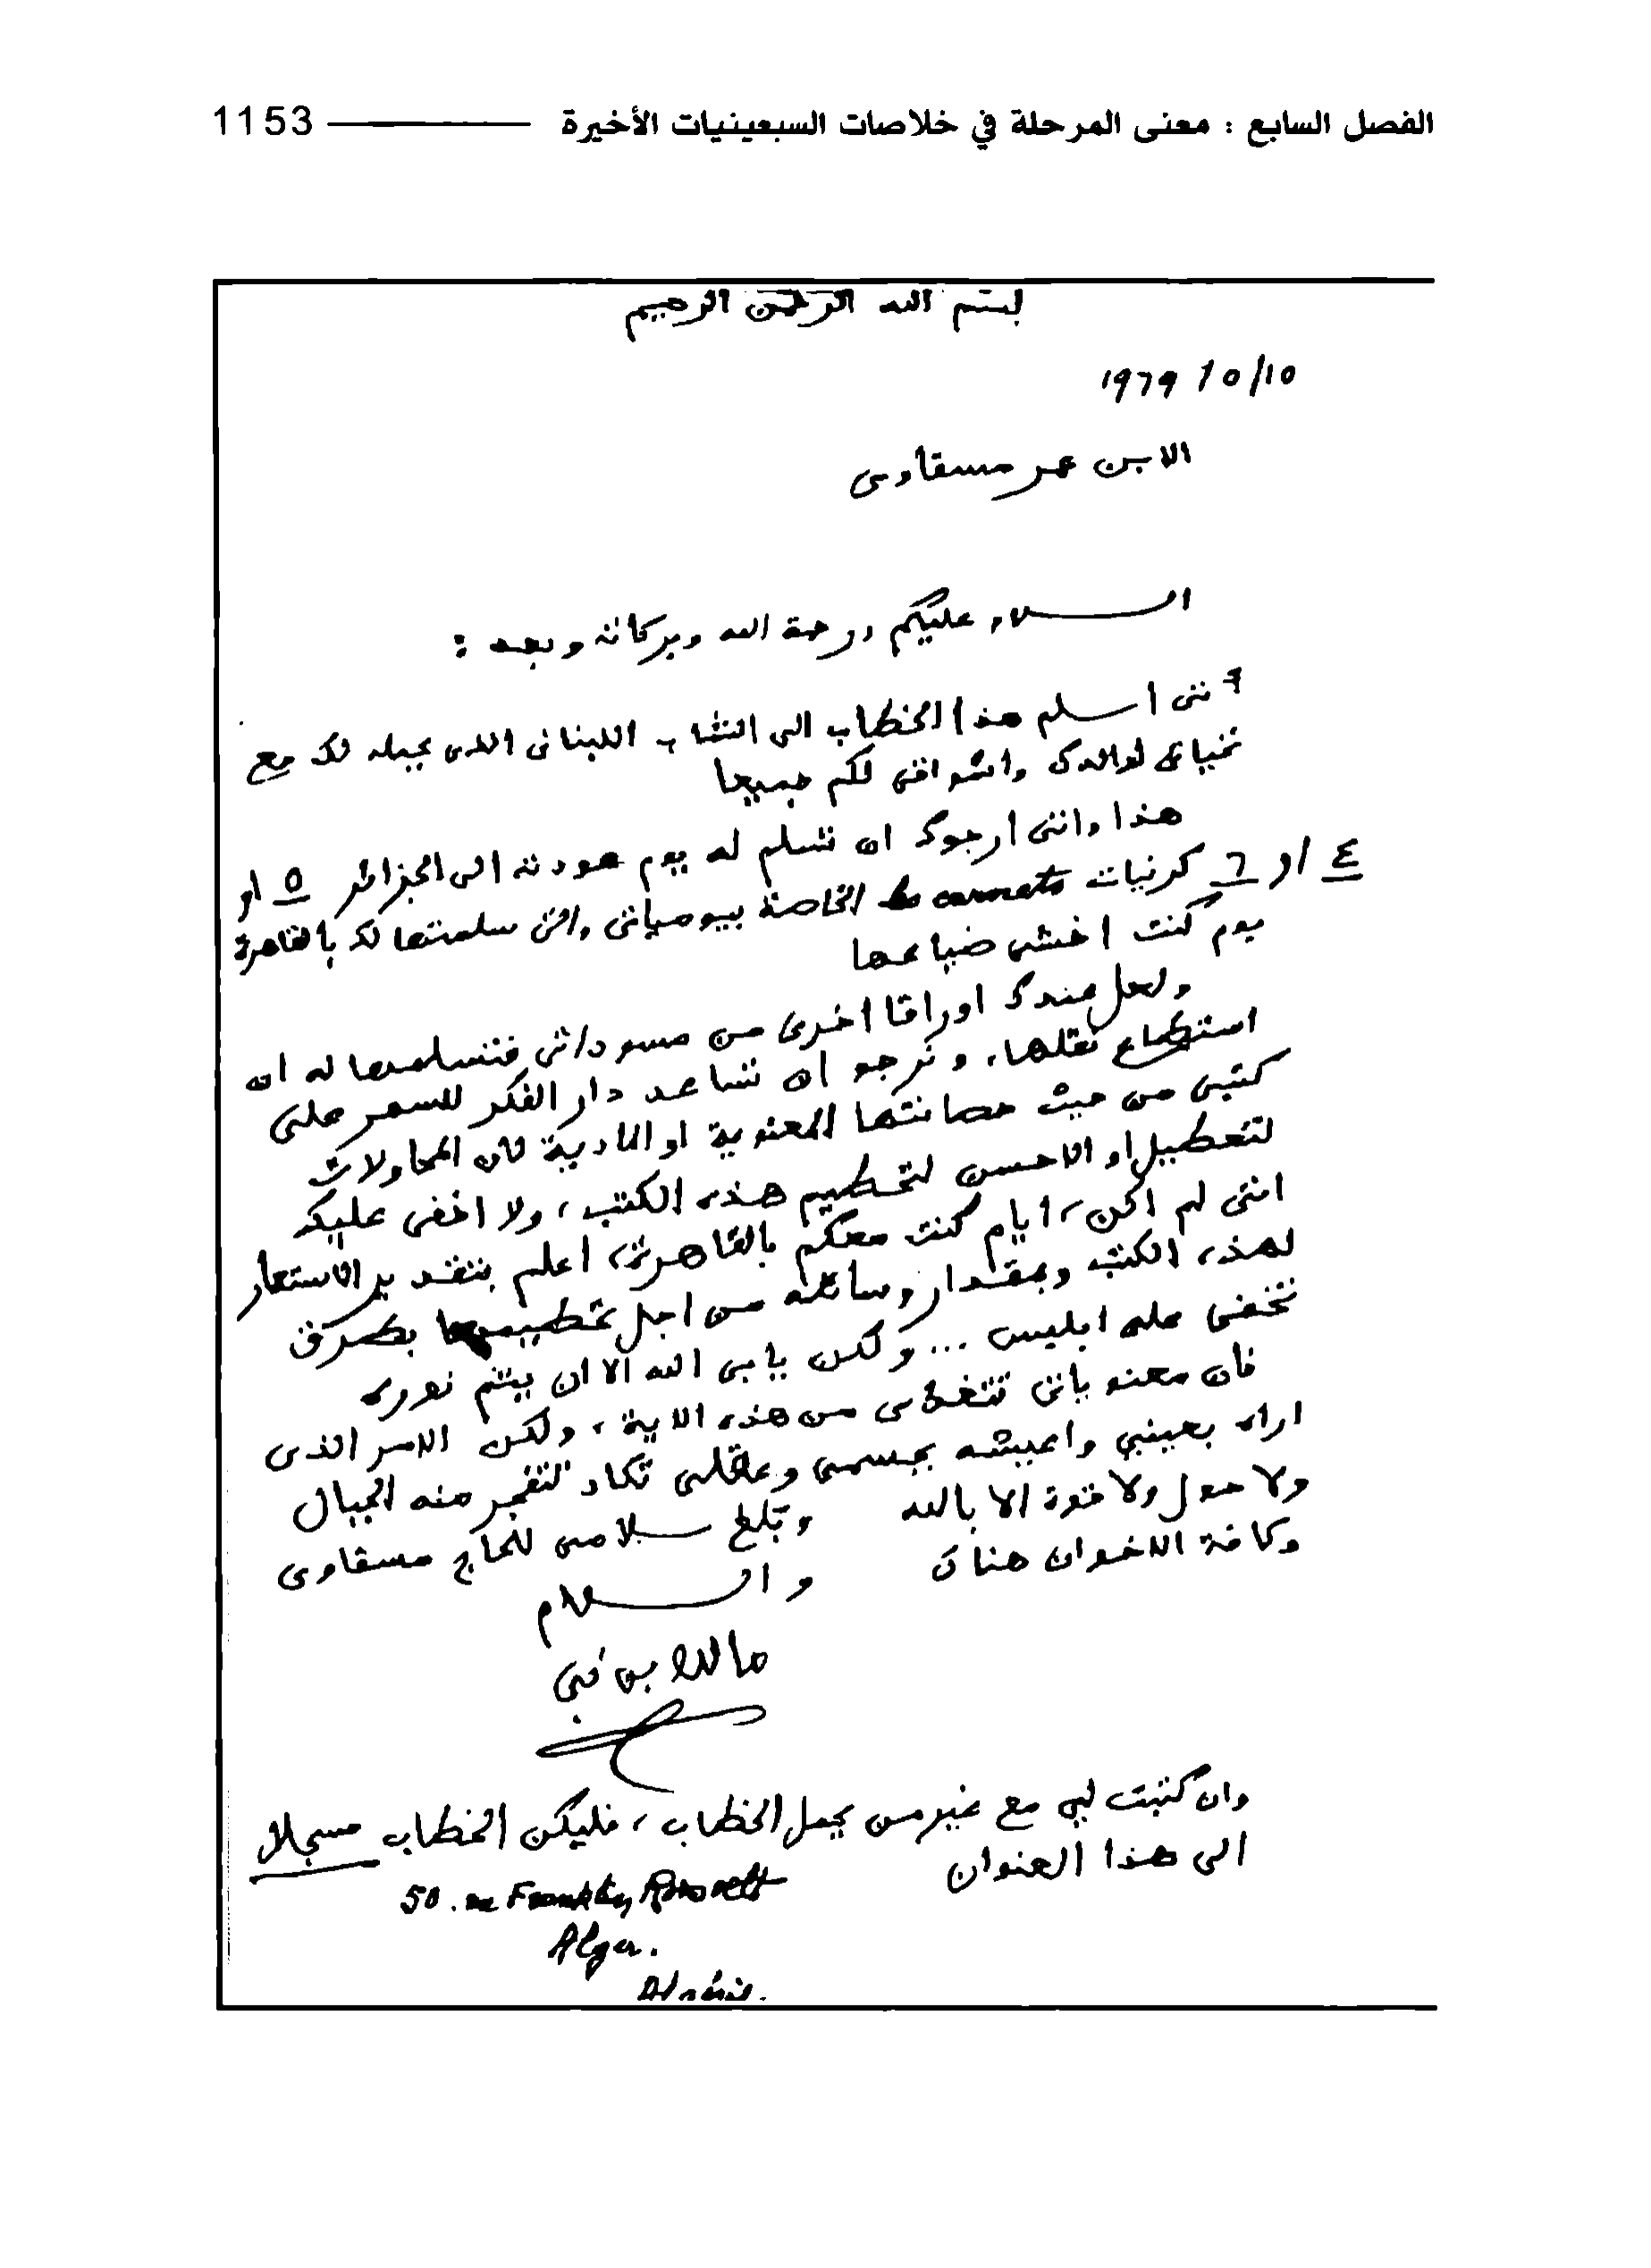 الفصل السابع : معنى المرحلة في خلاصات السبعينيات الأخيرة 1153
بسم الله الرحمن الرحيم
1979 / 5/15
الابن عمر مسقاوى
السلام عليكم ورحمة الله وبركاته وبعد :
اننى اسلم هذا الخطاب الى الشاب اللبنانى الذى يحمله لك مع
تحياتى لوالدك واشواقى لكم جميعا
هذا واننى ارجوك ان تسلم له يوم عودته الى الجزائر ٥ او
٤ او ٦ كرنيات les carnets الخاصة بيومياتى والتى سلمتها لك بالقاهرة
يوم كنت اخشى ضياعها
ولعل عندك اوراقا اخرى من مسوداتى فتسلمها له ان
استطاع نقلها، و نرجو ان تساعد دار الفكر للسهر على
كتبى من حيث حصانتها المعنوية او المادية لأن المحاولات
لتعطيل او الاحسن لتحطيم هذه الكتب، ولا اخفى عليك
اننى لم اكن، ايام كنت معكم بالقاهرة، اعلم بنقد ير الاستعمار
لهذه الكتب وبمقدار وسائله من اجل تحطيمها بطرق
تخفى على ابليس ... ولكن يابى الله الا ان يتم نوره
فان معنوياتى تتغذى من هذه الاية، ولكن الامر الذى
اراه بعينى واعيشه بجسمى وعقلى تكاد تنفجر منه الجبال
ولا حول ولا قوة الا بالله وتبلغ سلامى للحاج مسقاوى
وكافة الاخوان هناك
والسلام
مالك بن نبى
وان كتبت لى مع غير من يحمل الخطاب، فليكن الخطاب مسجلا
الى هذا العنوان
50. rue Franklin Roosevelt
Alger.
Algérie.